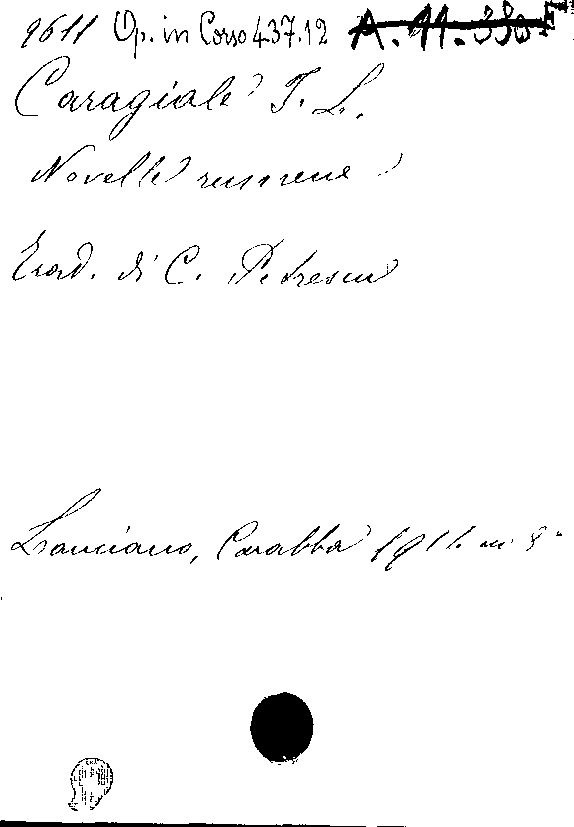 9611 Op. in Corso 437.12 A. 11. 330
Caragiale I. L.
Novelle rumene
Trad. di C. Petrescu
Lanciano, Carabba 1911. in 8°